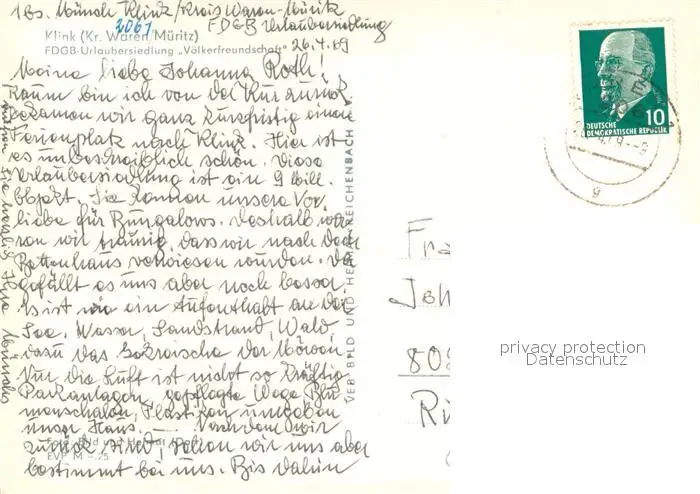 Abs. Münch Klink/Kreis Waren-Müritz
2061 FDGB Urlaubersiedlung
Klink (Kr. Waren/Müritz)
FDGB-Urlaubersiedlung „Völkerfreundschaft"
26.4.69
Meine liebe Johanna Roth!
Kaum bin ich von der Kur zurück
bekamen wir ganz kurzfristig einen
Ferienplatz nach Klink. Hier ist
es unbeschreiblich schön. Diese
Urlaubersiedlung ist ein 9 Mill.
Objekt. Sie kennen unsere Vor-
liebe für Bungalows. Deshalb wa-
ren wir traurig, dass wir nach dem
Bettenhaus verwiesen wurden. Da
gefällt es uns aber noch besser.
Es ist wie ein Aufenthalt an der
See. Wasser, Sandstrand, Wald
dazu das Gekreische der Möwen
Nur die Luft ist nicht so kräftig
Parkanlagen, gepflegte Wege Blu
menschalen, Plastiken umgeben
unser Haus. — Nachdem wir
zurück sind, sehen wir uns aber
bestimmt bei uns. Bis dahin
herzlich Ihre
Bild und Heimat
EVP M -.25
VEB BILD UND HEIMAT REICHENBACH
DEUTSCHE
DEMOKRATISCHE REPUBLIK
10
Fra
Joh
80
privacy protection
Datenschutz